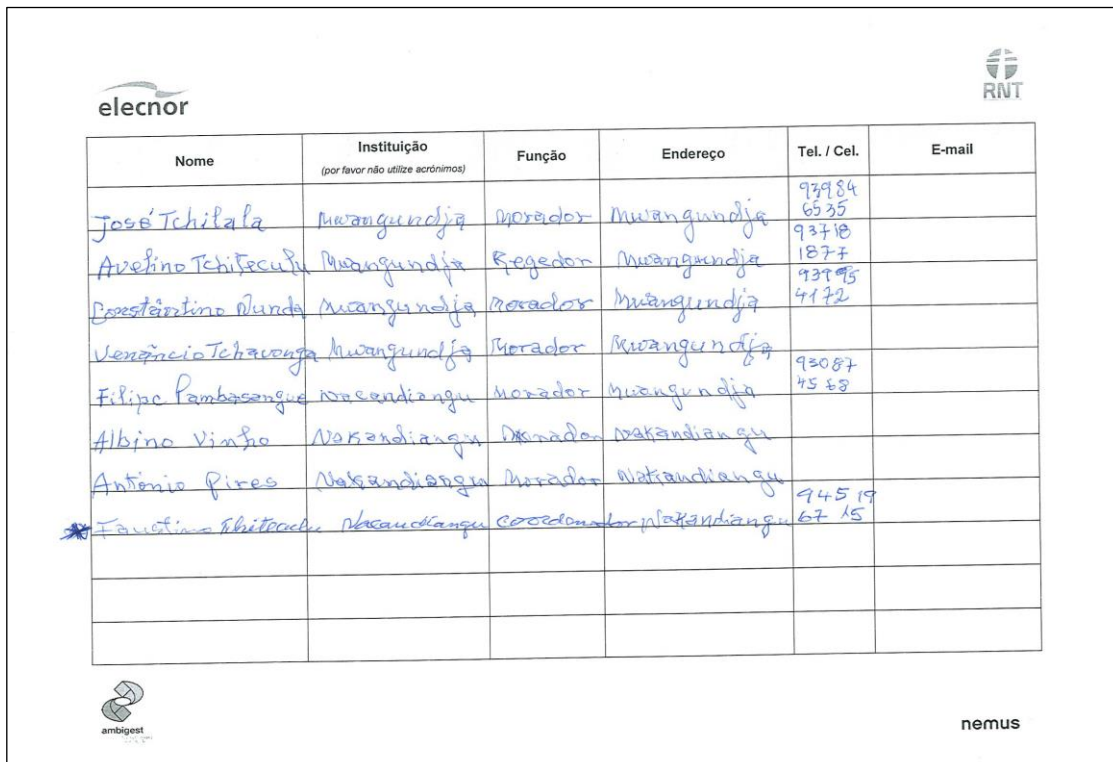 elecnor
RNT
Nome Instituição Função Endereço Tel. / Cel. E-mail
(por favor não utilize acrónimos)
José Tchilala Mwangundja Morador Mwangundja 93984 6535
Avelino Tchiteculu Mwangundja Regedor Mwangundja 93718 1877
Constântino Nunda Mwangundja Morador Mwangundja 93995 4172
Venâncio Tchavonga Mwangundja Morador Mwangundja
Filipe Pambasangue Nacandiangu Morador Mwangundja 93087 4568
Albino Vinho Nakandiangu Morador Nakandiangu
António Pires Nakandiangu Morador Nakandiangu
Faustino Tchiteculu Nacandiangu coordenador Nakandiangu 94519 67 15
ambigest
nemus